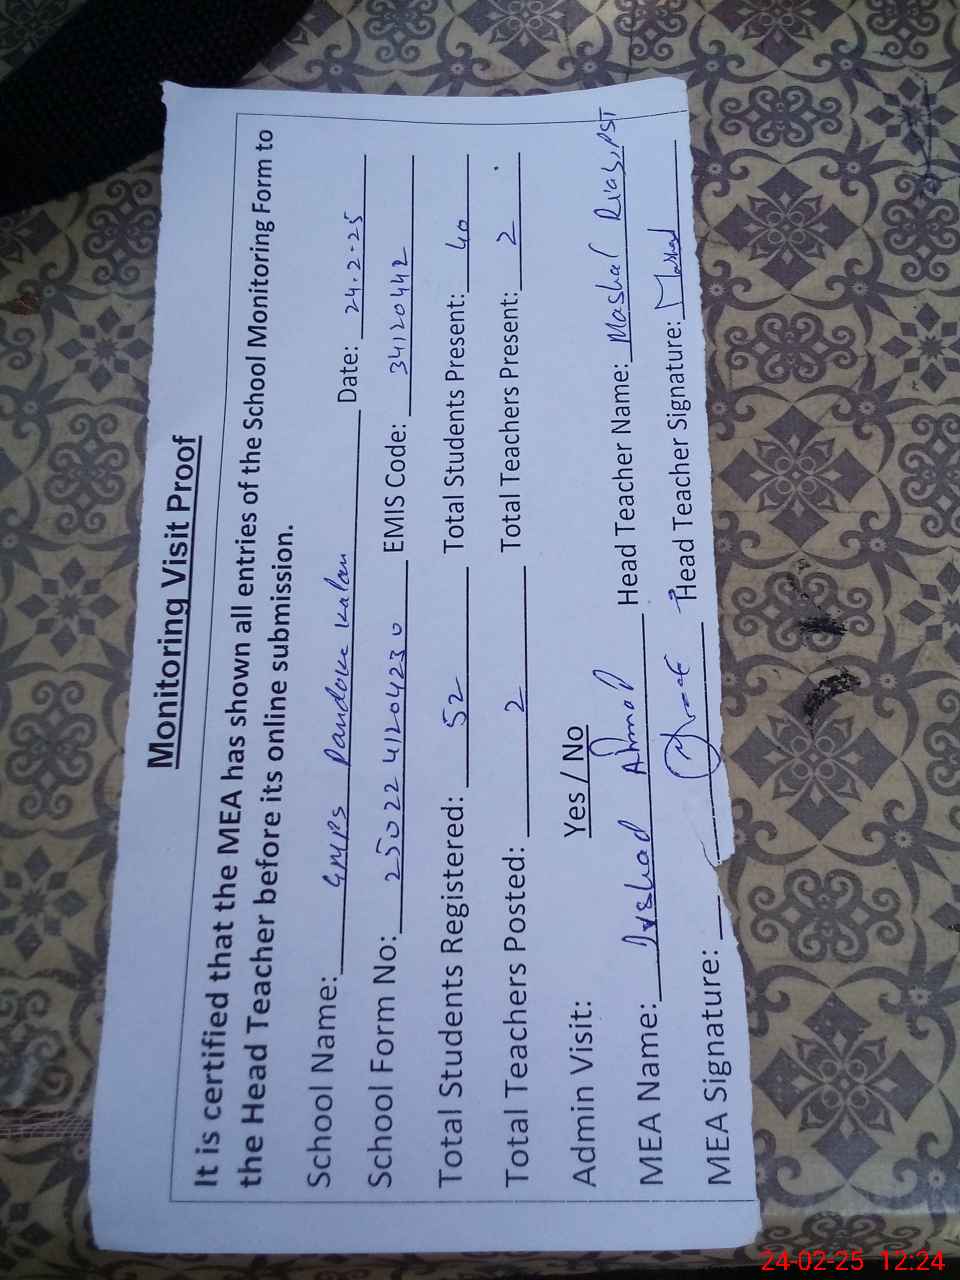 Monitoring Visit Proof
It is certified that the MEA has shown all entries of the School Monitoring Form to
the Head Teacher before its online submission.
School Name: GMPS Pandoke Kalan Date: 24.2.25
School Form No: 2502241204230 EMIS Code: 34120442
Total Students Registered: 52 Total Students Present: 40
Total Teachers Posted: 2 Total Teachers Present: 2
Admin Visit: Yes / No
MEA Name: Irshad Ahmad Head Teacher Name: Mashal Rias, PST
MEA Signature: Head Teacher Signature: Mashal
24-02-25 12:24